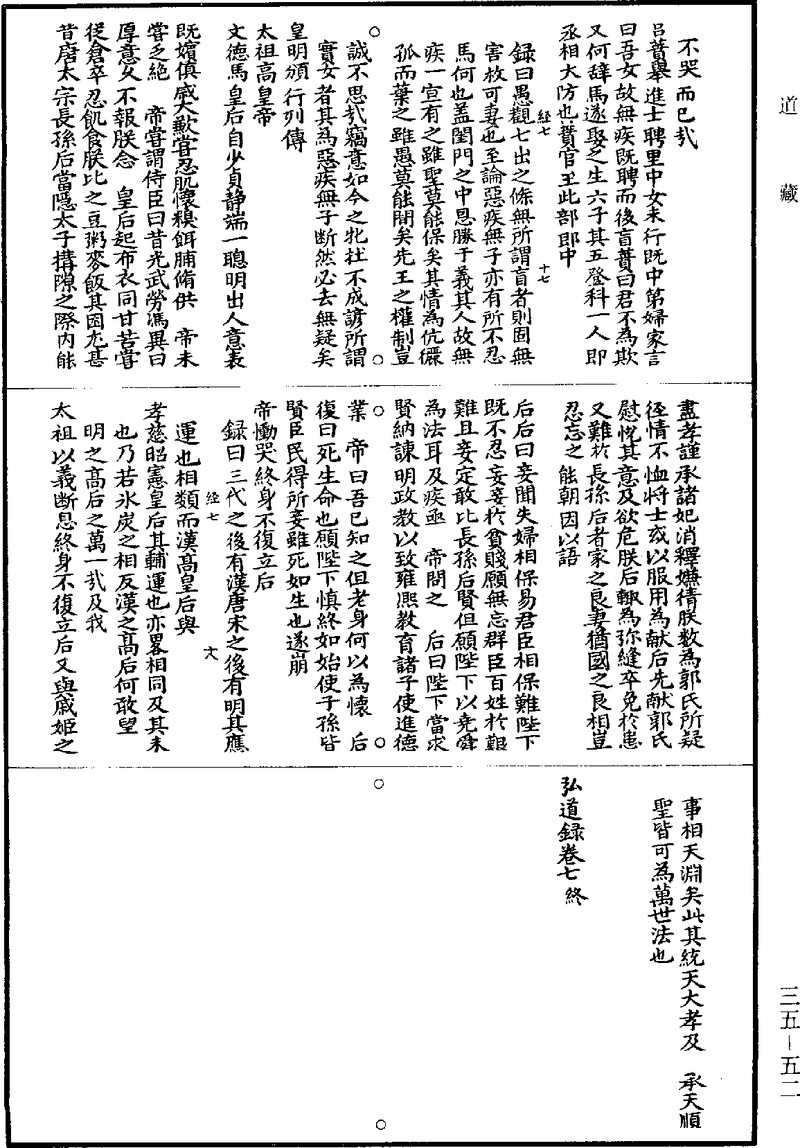 道藏
不哭而已哉
呂蕡舉進士聘里中女未行既中第婦家言
曰吾女故無疾既聘而後盲蕡曰君不為欺
又何辭焉遂娶之生六子其五登科一人即
丞相大防也蕡官至此部郎中
錄曰愚觀七出之條無所謂盲者則固無
経七
十七
害於可妻也至論惡疾無子亦有所不忍
焉何也盖閨門之中恩勝于義其人故無
疾一宣有之雖聖莫能保矣其情為伉儷
孤而棄之雖愚莫能閉矣先王之權制豈
誠不思哉竊意如今之牝牡不成諺所謂
實女者其為惡疾無子断然必去無疑矣
皇明頒行列傳
太祖高皇帝
文德馬皇后自少貞静端一聰明出人意表
既嬪偵歲大歉嘗忍飢懷糗餌脯脩供 帝未
嘗乏絶 帝嘗謂侍臣曰昔光武勞馮異曰
厚意久不報朕念 皇后起布衣同甘苦嘗
從倉卒忍飢食朕比之豆粥麥飯其困尤甚
昔唐太宗長孫后當隱太子搆隙之際内能
盡孝謹承諸妃消釋嫌猜朕数為郭氏所疑
徑情不恤将士或以服用為献后先献郭氏
慰悅其意及欲危朕后輙為弥縫卒免於患
又難於長孫后者家之良妻猶國之良相豈
忍忘之 罷朝因以語
后后曰妾聞夫婦相保易君臣相保難陛下
既不忍忘妾於貧賤願無忘群臣百姓於艱
難且妾定敢比長孫后賢但願陛下以堯舜
為法耳及疾亟 帝問之 后曰陛下當求
賢納諫明政教以致雍熈教育諸子使進德
業 帝曰吾已知之但老身何以為懷 后
復曰死生命也願陛下慎終如始使子孫皆
賢臣民得所妾雖死如生也遂崩
帝慟哭終身不復立后
錄曰三代之後有漢唐宋之後有明其應
経七
十八
運也相類而漢髙皇后與
孝慈昭憲皇后其輔運也亦畧相同及其末
也乃若氷炭之相反漢之髙后何敢望
明之髙后之萬一哉及我
太祖以義断恩終身不復立后又與戚姬之
事相天淵矣此其統天大孝及 承天順
聖皆可為萬世法也
弘道錄卷七終
三五－五二